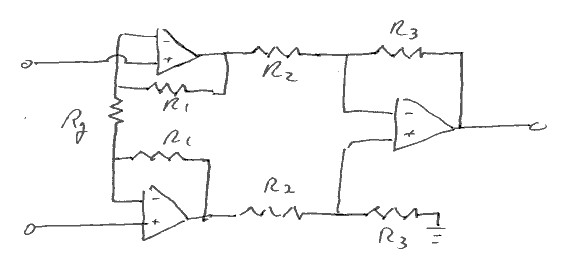 R3
- 
+
R2
R1
Rg
R1
-
+
R2
-
+
R3